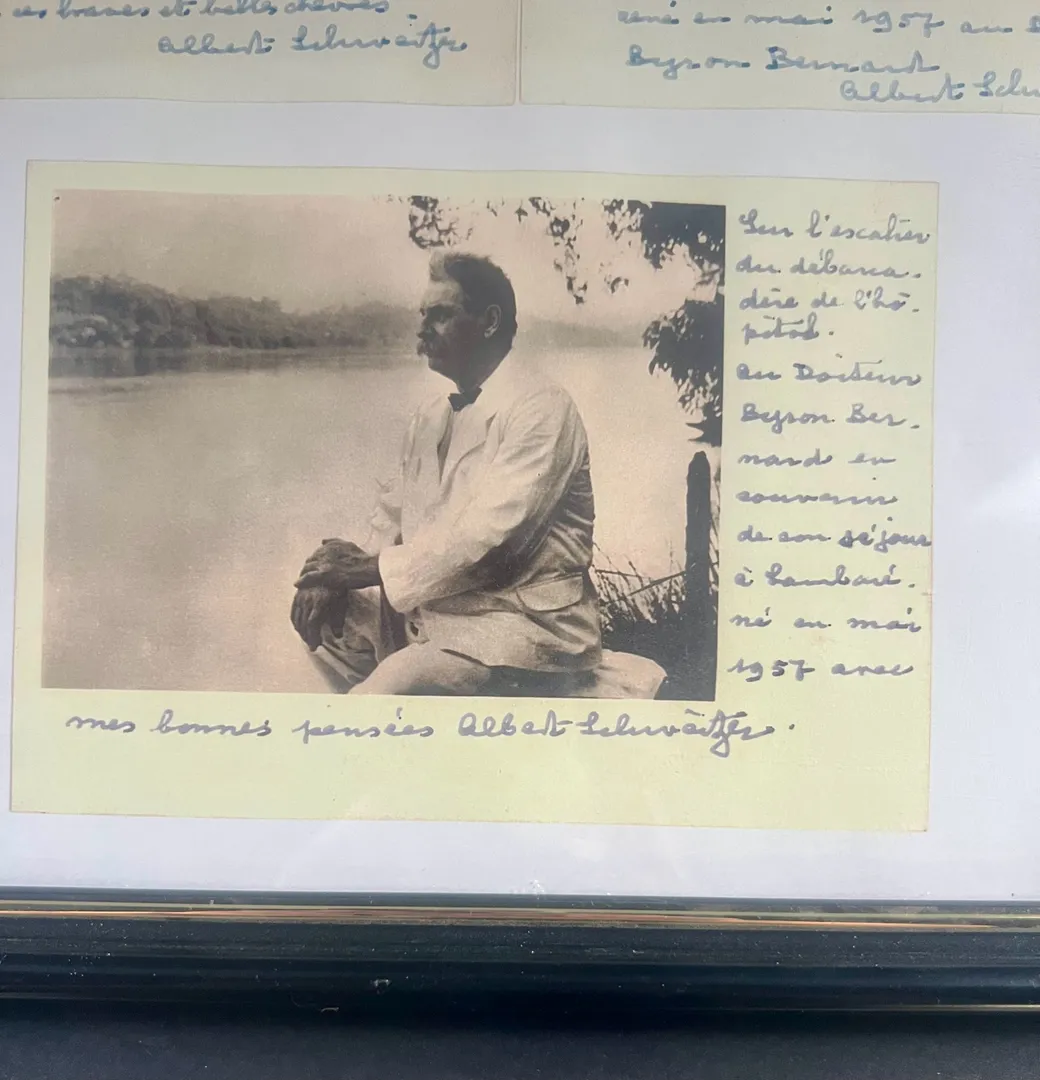 ces braves et belles chèvres.
Albert Schweitzer
réné en mai 1957 au
Byron Bernard
Albert Schw
Sur l'escalier
du débarca-
dère de l'hô-
pital.
Au Docteur
Byron Ber-
nard en
souvenir
de son séjour
à Lambaré-
né en mai
1957 avec
mes bonnes pensées Albert Schweitzer.